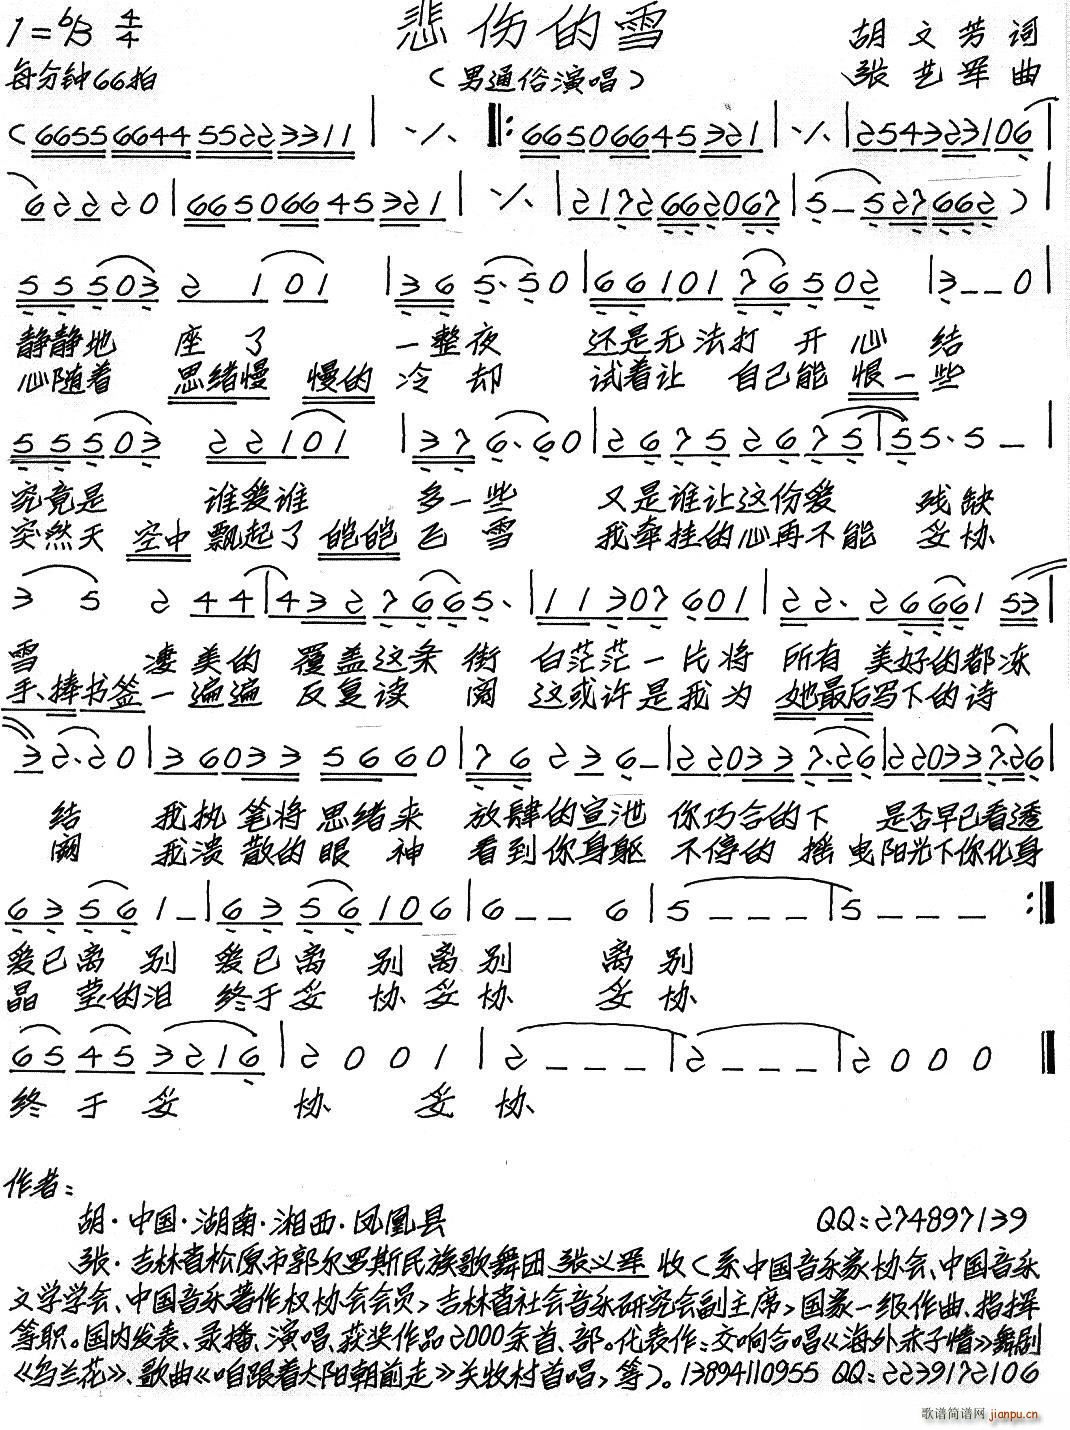 1=♭B 4/4 悲伤的雪 胡文芳词
每分钟66拍 (男通俗演唱) 张艺军曲
(6655 6644 5522 3311 | ·/· ‖: 6650 6645 321 | ·/· | 2543 23106 |
6222 0 | 6650 6645 321 | ·/· | 217 2662067 | 5 – 527 662 ) |
5 5 503 2 1 01 | 3 6 5·50 | 66 101 76502 | 3 – – 0 |
静静地 座 了 一整夜 还是无法打 开 心 结
心随着 思绪慢 慢的 冷 却 试着让 自己能 恨一些
5 5 503 2 2 101 | 3 7 6·60 | 2675 2675 | 55·5 – |
究竟是 谁爱谁 多一些 又是谁让这份爱 残缺
突然天 空中 飘起了 皑皑飞 雪 我牵挂的心再不能 妥协
3 5 2 44 | 432 7 665· | 11 307 601 | 22· 26661 53 |
雪 凄美的 覆盖这条 街 白茫茫一片将 所有 美好的都冻
手捧书签一遍遍 反复读 阅 这或许是我为 她最后写下的诗
3 2·20 | 36033 5660 | 7 6 2 3 6 – | 22033 7·26 | 22033 7·26 |
结 我执 笔将 思绪来 放肆的宣泄 你巧合的下 是否早已看透
阙 我溃 散的眼 神 看到你身躯 不停的 摇 曳阳光下你化身
63 56 1 – | 63 56 106 | 6 – – 6 | 5 – – – | 5 – – – :‖
爱已离 别 爱已离 别 离别 离 别
晶 莹的泪 终于妥 协 妥协 妥 协
65 45 3216 | 2 0 0 1 | 2 – – – | 2 – – – | 2 0 0 0 ‖
终 于 妥 协 妥 协
作者:
胡·中国·湖南·湘西·凤凰县 QQ:274897139
张·吉林省松原市郭尔罗斯民族歌舞团 张义军 收(系中国音乐家协会、中国音乐
文学学会、中国音乐著作权协会会员,吉林省社会音乐研究会副主席,国家一级作曲、指挥
等职。国内发表、录播、演唱、获奖作品2000余首、部。代表作:交响合唱《海外赤子情》舞剧
《乌兰花》、歌曲《咱跟着太阳朝前走》关牧村首唱,等)。13894110955 QQ:2239172106
歌谱简谱网 jianpu.cn